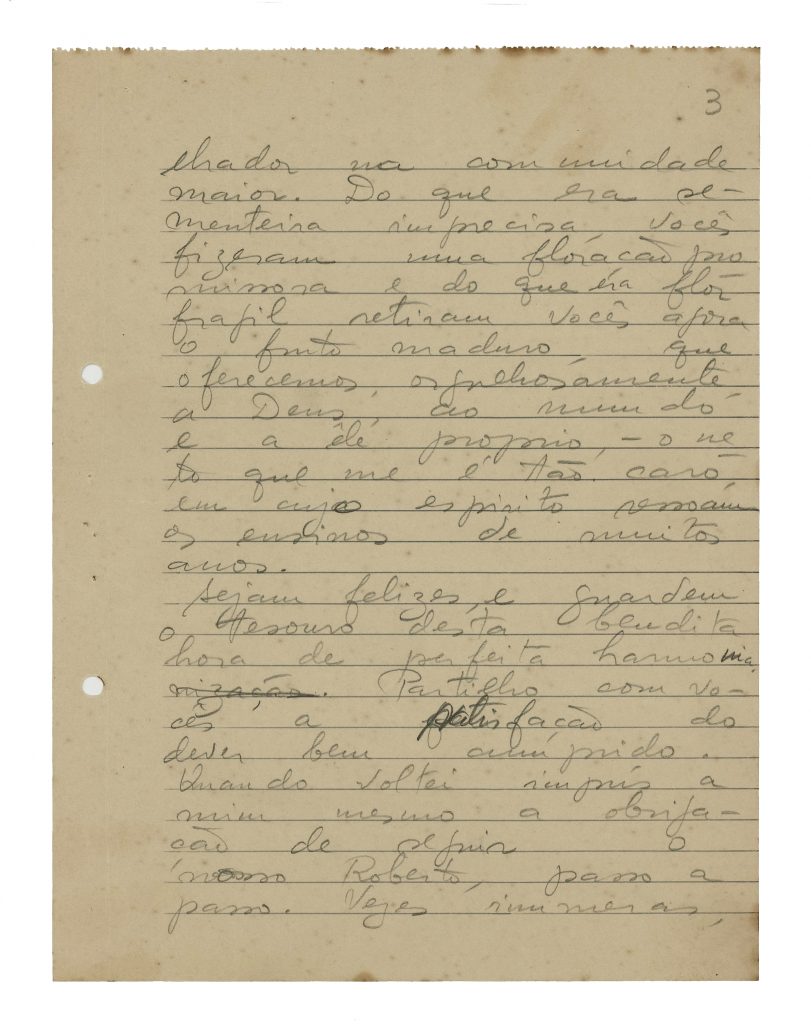 3
lhador na comunidade
maior. Do que era se-
menteira imprecisa, vocês
fizeram uma floração pro
missora e do que éra flôr
fragil retiram vocês agora
o fruto maduro, que
oferecemos, orgulhosamente
a Deus, ao mundo
e a êle proprio, - o ne
to que me é tão caro,
em cujo espirito ressoam
os ensinos de muitos
anos.
Sejam felizes, e guardem
o tesouro desta bendita
hora de perfeita harmonia
nização. Partilho com vo-
cês a satisfação do
dever bem cumprido.
Quando voltei impús a
mim mesmo a obriga-
cão de seguir o
nosso Roberto, passo a
passo. Vezes inumeras,